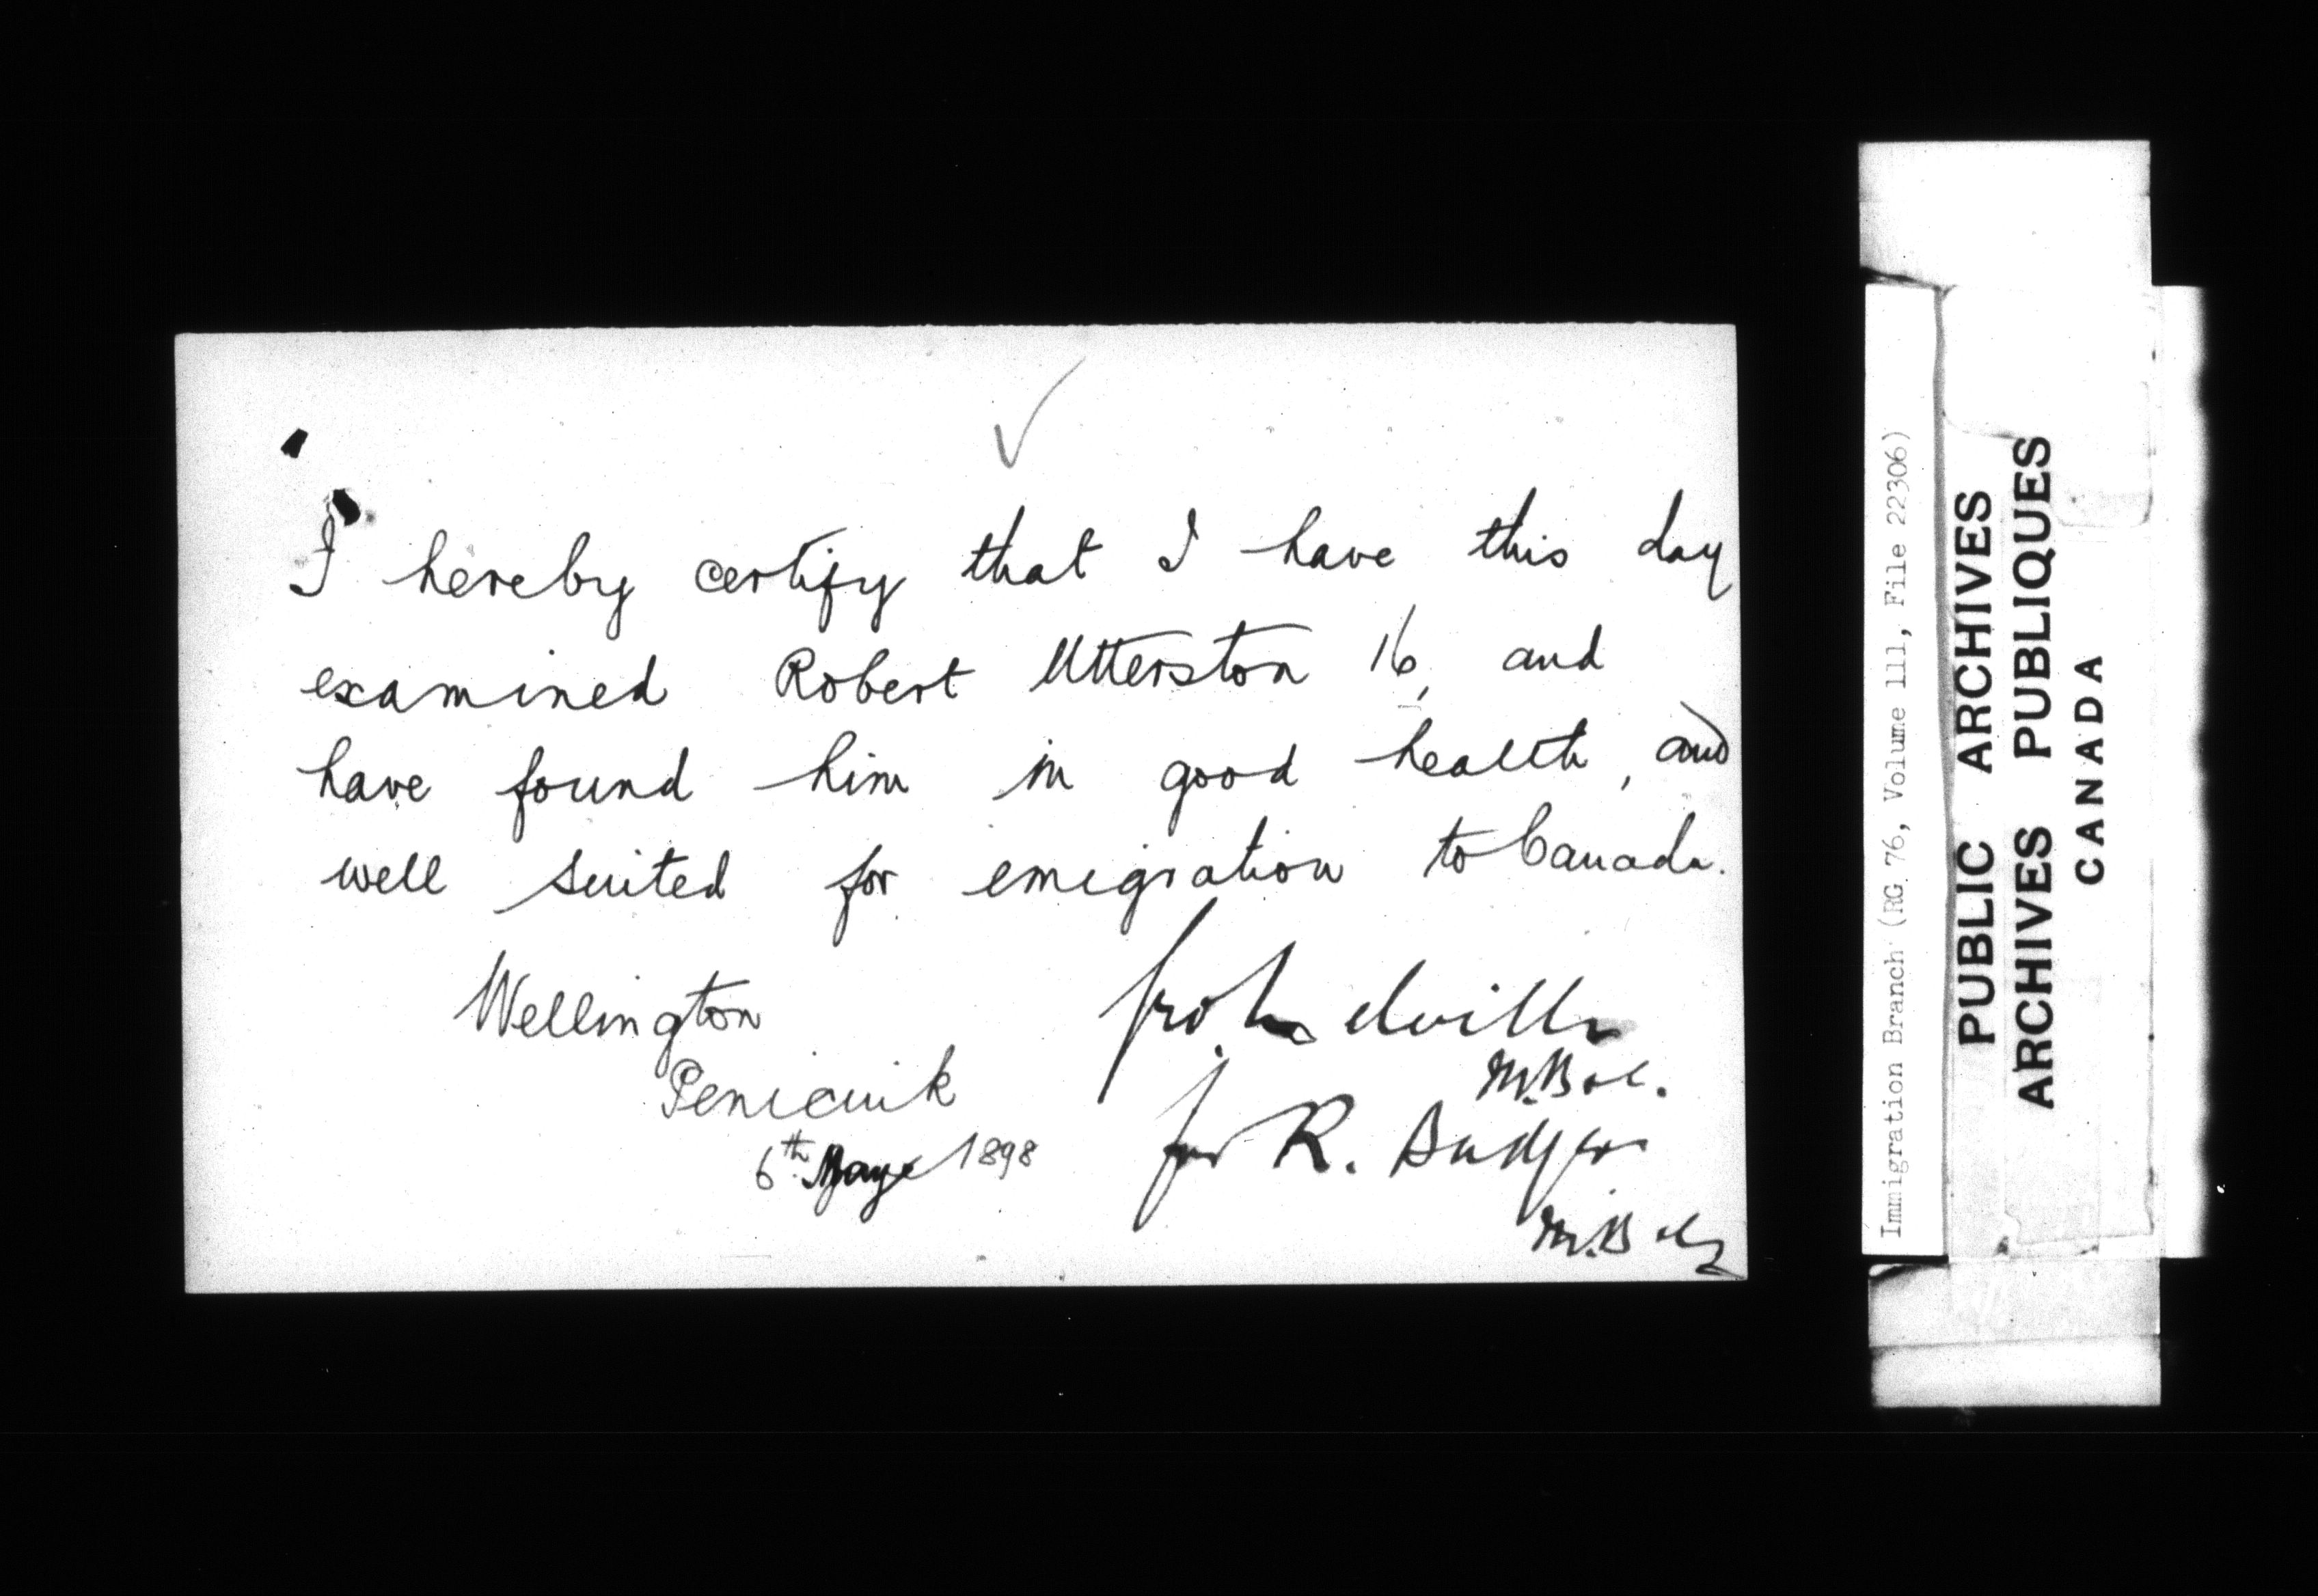 I hereby certify that I have this day
examined Robert Utterston 16, and
have found him in good health, and
well suited for emigration to Canada.
Wellington
Penicuik
6th May 1898
M.B.
for R.
M.B.
Immigration Branch (RG 76, Volume 111, File 22306)
PUBLIC ARCHIVES
ARCHIVES PUBLIQUES
CANADA